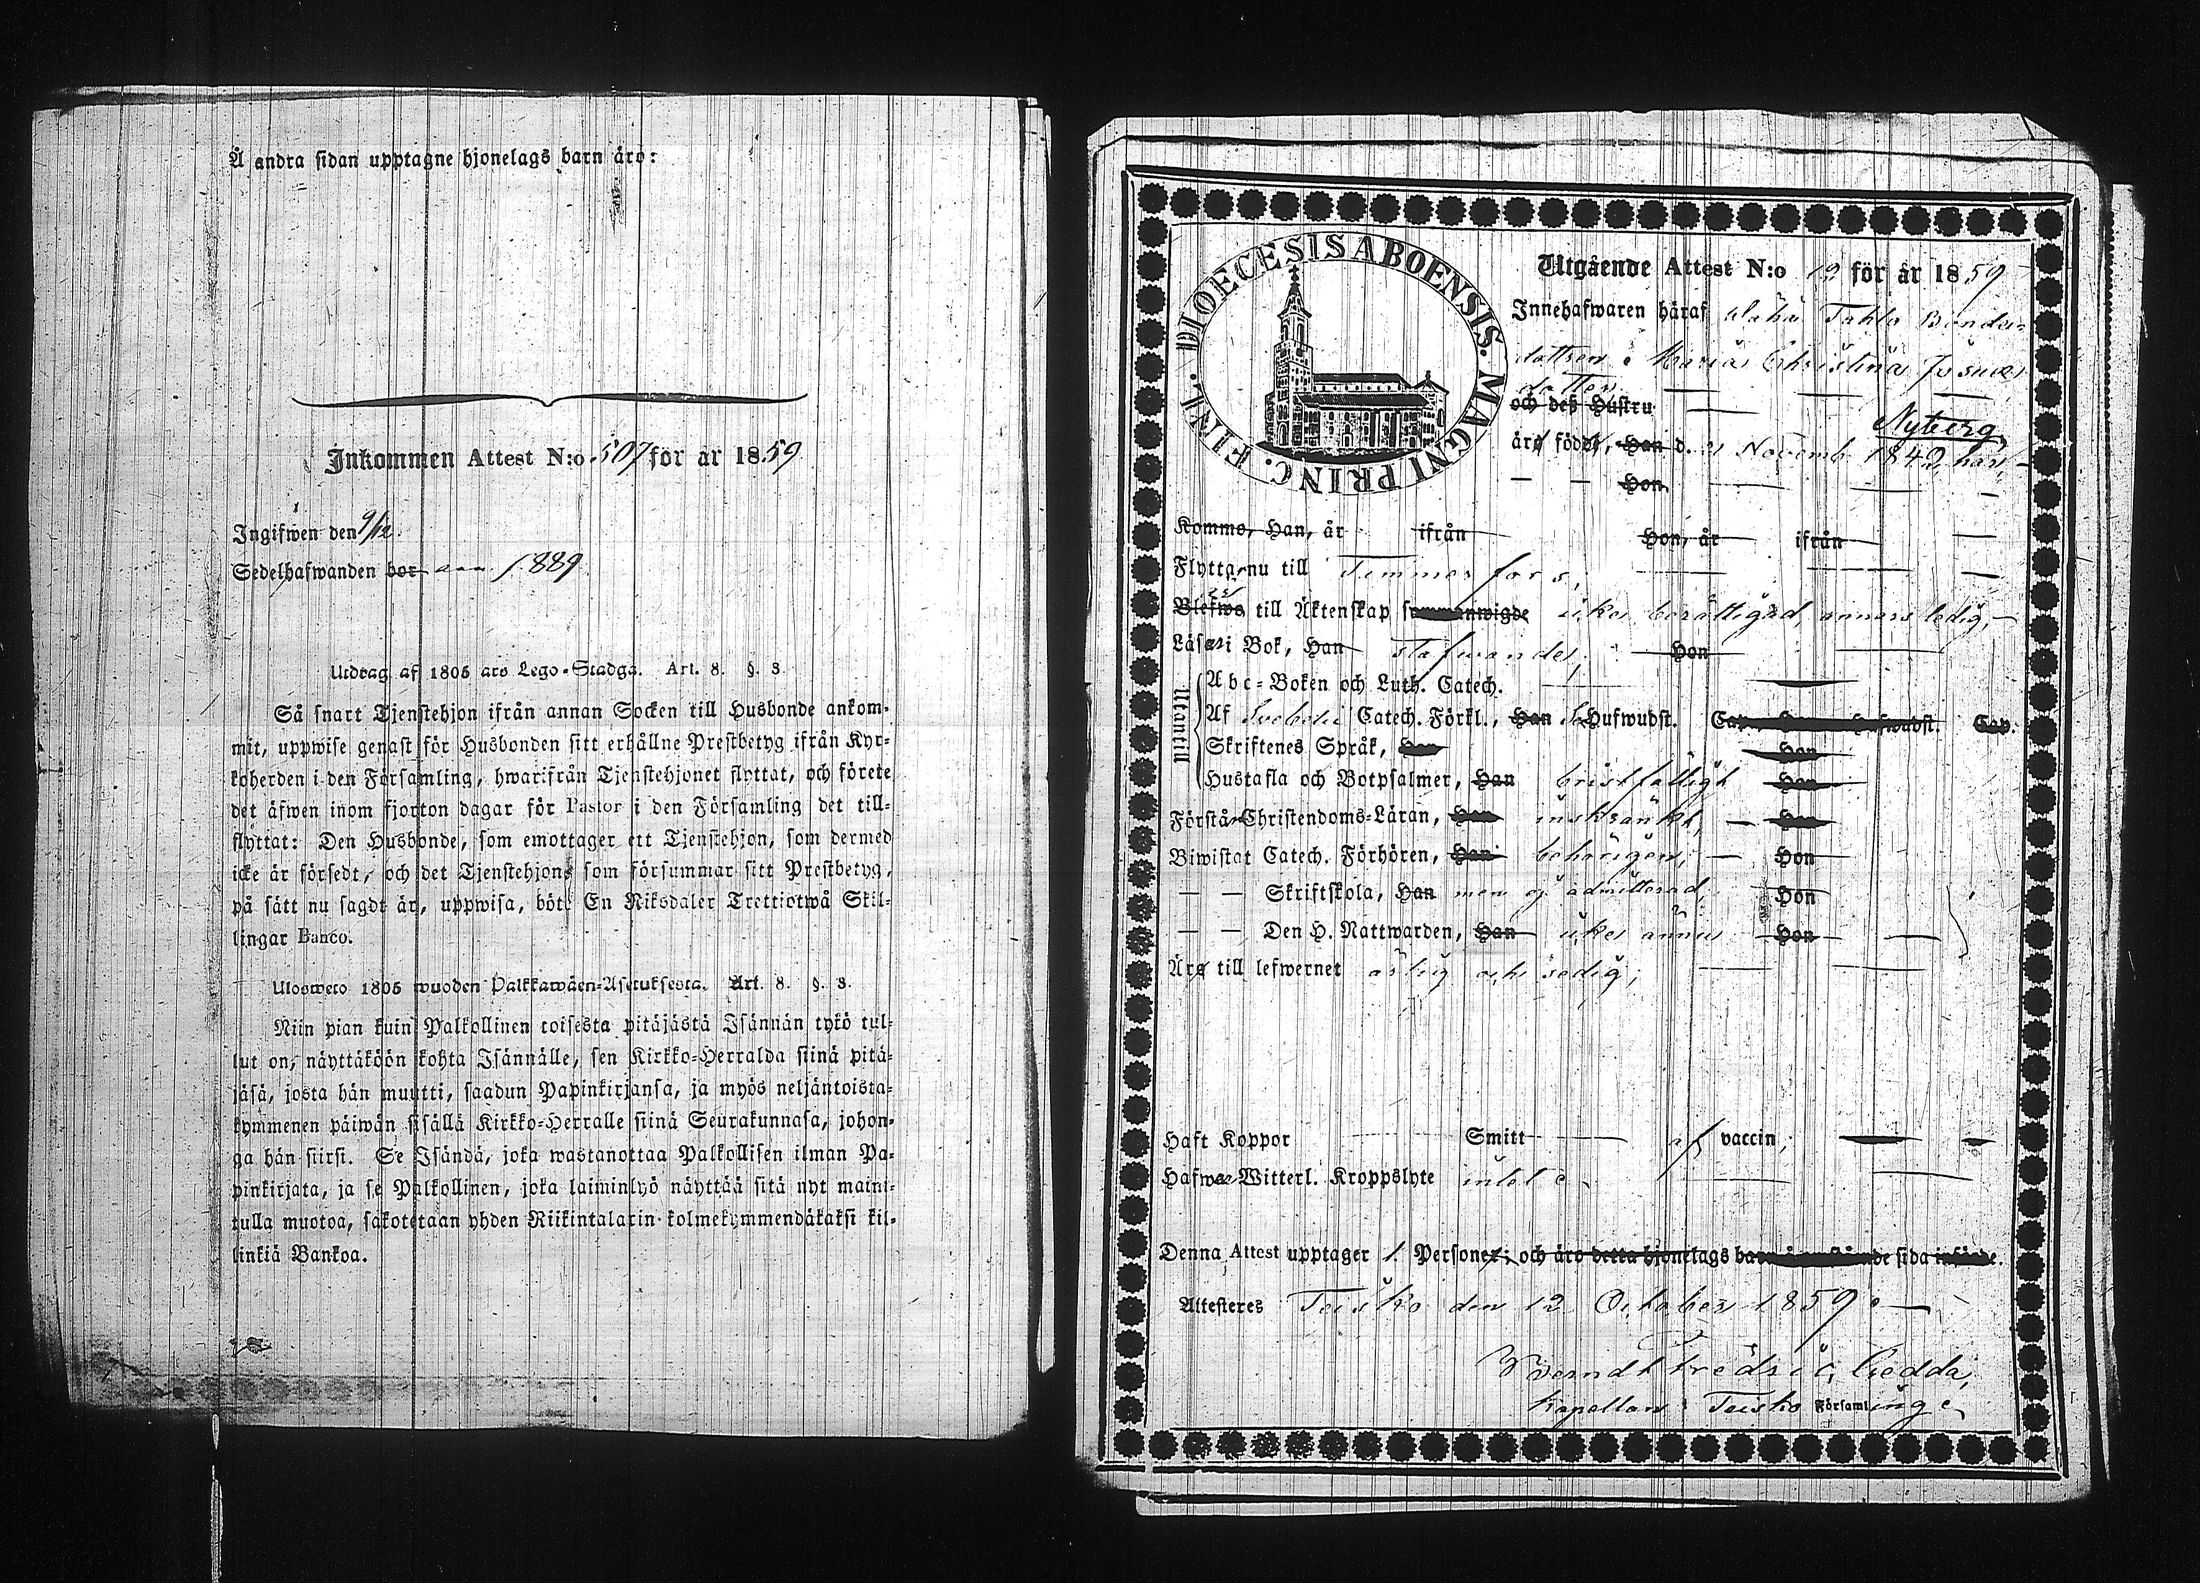 Å andra sidan upptagne hjonelags barn äro:
Inkommen Attest N:o 507 för år 1859
Ingifwen den 9/12.
Sedelhafwanden bor 1889
Utdrag af 1805 års Lego-Stadga. Art. 8. §. 3.
Så snart Tjenstehjon ifrån annan Socken till Husbonde ankom-
mit, uppwise genast för Husbonden sitt erhållne Prestbetyg ifrån Kyr-
koherden i den Församling, hwarifrån Tjenstehjonet flyttat, och förete
det äfwen inom fjorton dagar för Pastor i den Församling det till-
flyttat: Den Husbonde, som emottager ett Tjenstehjon, som dermed
icke är försedt, och det Tjenstehjon, som försummar sitt Prestbetyg,
på sätt nu sagdt är, uppwisa, böte En Riksdaler Trettiotwå Skil-
lingar Banco.
Ulosweto 1805 wuoden Palkkawäen-Asetuksesta. Art. 8. §. 3.
Niin pian kuin Palkollinen toisesta pitäjästä Isännän tykö tul-
lut on, näyttäköön kohta Isännälle, sen Kirkko-Herralda siinä pitä-
jäsä, josta hän muutti, saadun Papinkirjansa, ja myös neljäntoista-
kymmenen päiwän sisällä Kirkko-Herralle siinä Seurakunnasa, johon-
ga hän siirsi. Se Isändä, joka wastanottaa Palkollisen ilman Pa-
pinkirjata, ja se Palkollinen, joka laiminlyö näyttää sitä nyt maini-
tulla muotoa, sakotetaan yhden Riikintalarin kolmekymmendäkaksi kil-
linkiä Bankoa.
DIOECESIS ABOENSIS. MAGNI PRINC. FINL.
Utgående Attest N:o 12 för år 1859
Innehafwaren häraf Tahlo Bonde-
dottren Maria Christina Josua
dotter
och deß Hustru
Nyberg
äro födde, Han d. 21 Novemb 1842, har
Hon
Komma, Han, år ifrån Hon, år ifrån
Flytta nu till Tammerfors,
Blefwo till Äktenskap sammanwigde icke berättigad, annars ledig,
Läsa i Bok, Han stafwande, Hon
Utantill
Abc-Boken och Luth. Catech.
Af Svebelii Catech. Förkl., Han Hufwudst. Cap. Hufwudst. Cap.
Skriftenes Språk, Han Hon
Hustafla och Botpsalmer, Han bristfälligt Hon
Förstår Christendoms-Läran, Han inskränkt, Hon
Biwistat Catech. Förhören, Han behörigen, Hon
— — Skriftskola, Han men ej admitterad, Hon
— — Den H. Nattwarden, Han icke ännu Hon
Äro till lefwernet ärlig och sedig,
Haft Koppor Smitt af vaccin,
Hafwa Witterl. Kroppslyte intet
Denna Attest upptager 1. Personer; och äro detta hjonelags barn å omstående sida införde.
Attesteres Teisko den 12 October 1859
Berndt Fredric Gedda,
Kapellan i Teisko Församling